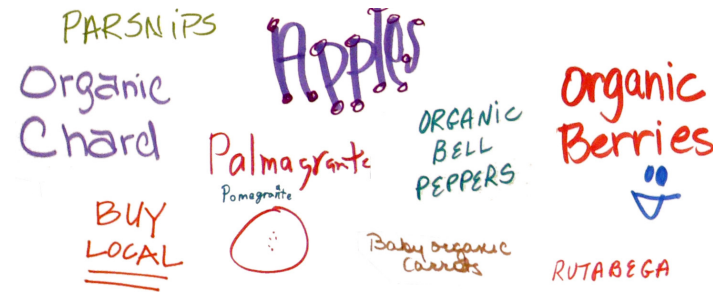 PARSNiPS
Apples
Organic
Chard
Palmagrante
Pomagranite
ORGANiC
BELL
PEPPERS
Organic
Berries
BUY
LOCAL
Baby organic
Carrots
RUTABEGA